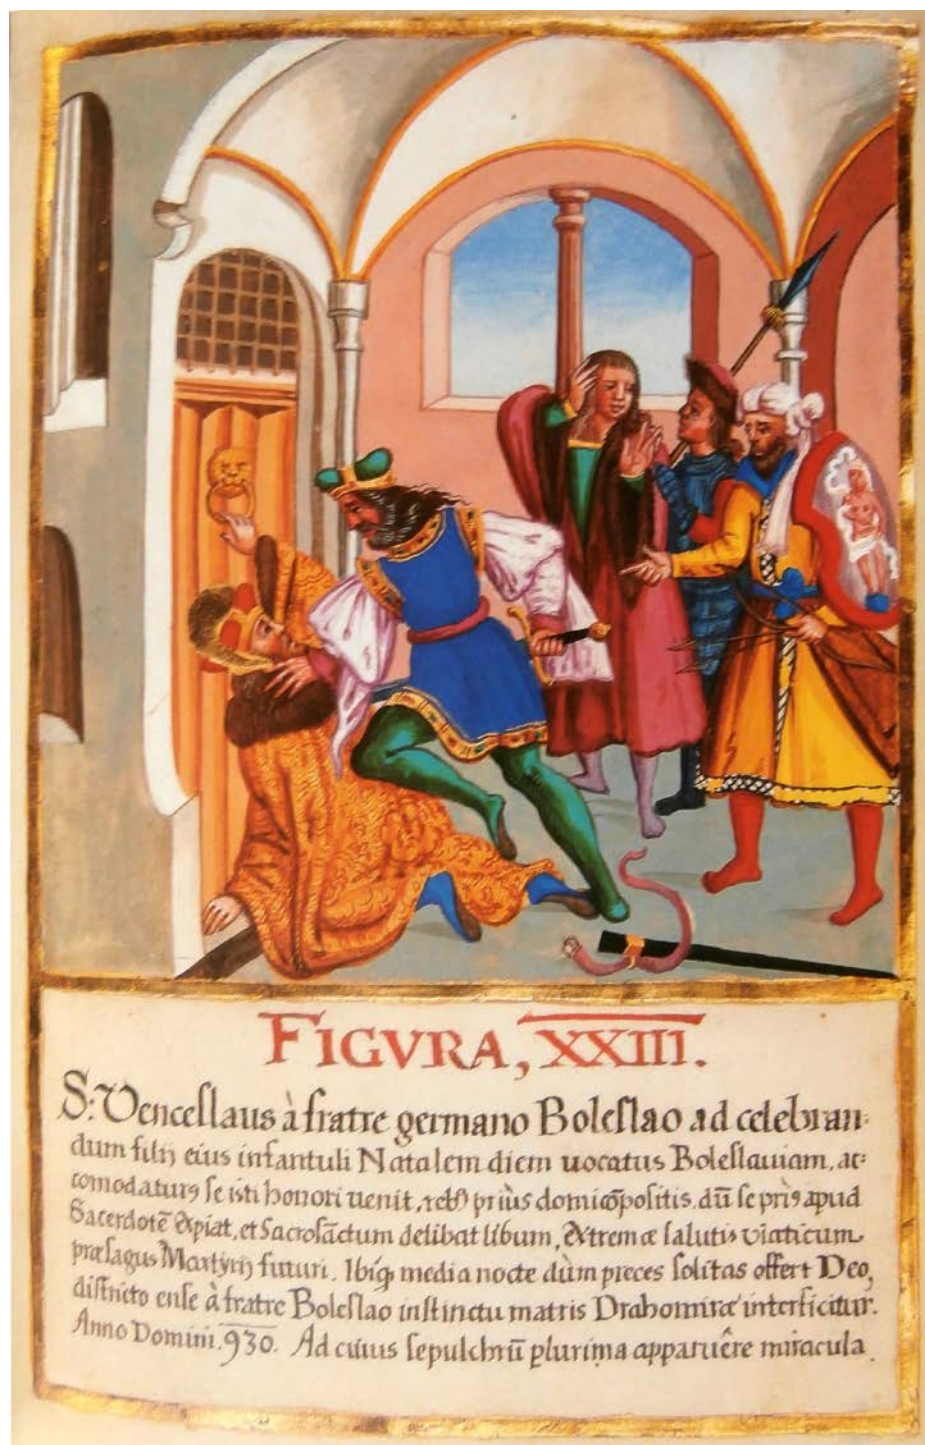 FIGVRA, XXIII.
S: Venceslaus à fratre germano Boleslao ad celebran:
dum filij eius infantuli Natalem diem uocatus Boleslauiam, ac:
comodaturꝰ se isti honori uenit, reb⁹ priùs domi cōpositis, dū se priꝰ apud
Sacerdotē expiat, et Sacrosāctum delibat libum, extremæ salutis viaticum
præsagus Martyrij futuri. Ibiq́ media nocte dùm preces solitas offert Deo,
districto ense à fratre Boleslao instinctu matris Drahomiræ interficitur.
Anno Domini. 930. Ad cuius sepulchrū plurima apparuêre miracula.